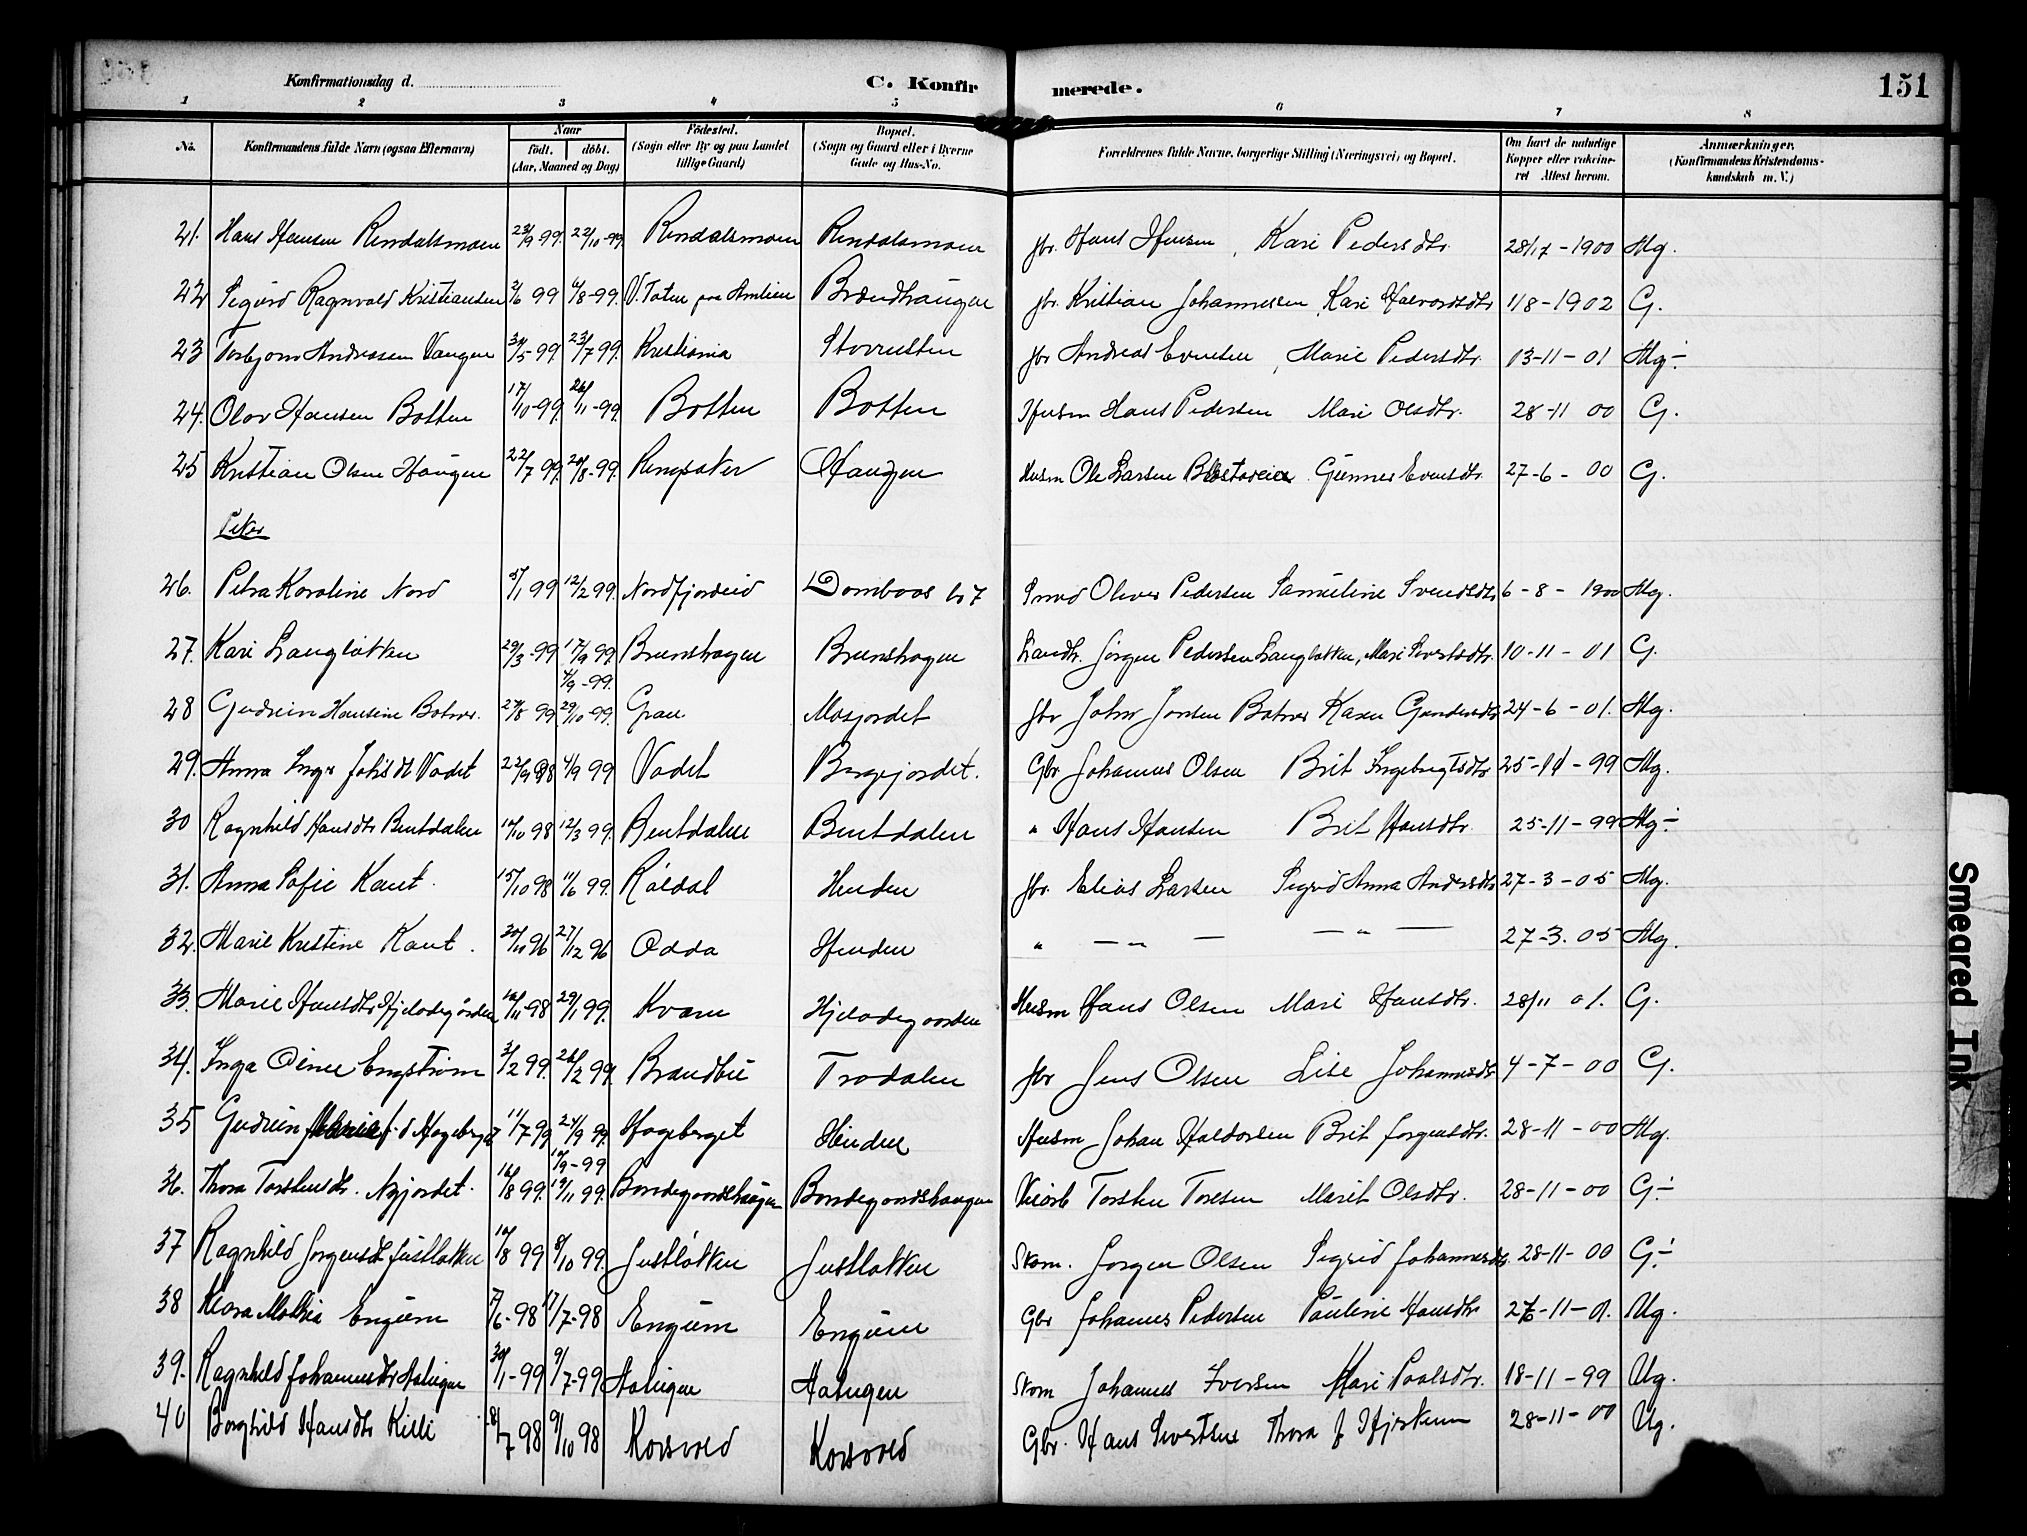 Konfirmationsdag d.
C. Konfirmerede.
151
1 2 3 4 5 6 7 8
No. Konfirmandens fulde Navn (ogsaa Efternavn) Naar født. døbt. (Aar, Maaned og Dag) Fødested. (Sogn eller By og paa Landet tillige Gaard) Bopæl. (Sogn og Gaard eller i Byerne Gade og Hus-No. Forældrenes fulde Navne, borgerlige Stilling (Næringsvei) og Bopæl. Om havt de naturlige Kopper eller vaksineret Attest herom. Anmærkninger. (Konfirmandens Kristendomskundskab m. V.)
21. Hans Hansen Rendalsmoen 23/9 99. 22/10-99. Rendalsmoen Rendalsmoen fbr. Hans Hansen, Kari Pedersdtr. 1900 Mg.
22 Sigurd Ragnvald Kristiansen 2/6 99 6/8-99. V. Toten Brændhaugen fbr. Kristian Johannessen, Kari Halvorsdtr 1/8-1902 G.
23 Torbjørn Andreasen Vangen 30/5-99. 23/7 99. Kristiania Storrusten fbr Andreas Evensen, Marie Pedersdtr. 13-11-01 Mg÷
24. Olav Hansen Botten 17/10-99 26/11-99. Botten Botten Husm Hans Pedersen Mari Olsdtr. 28-11 00 G.
25 Kristian Olsen Haugen 22/7 99. 20/8-99. Ringsaker Haugen Husm Ole Larsen Gunner Evensdtr. 27-6-00 G.
Piker
26. Petra Karoline Nord 31/1 99 12/2 99. Nordfjordeid Dombaas Smed Oliver Pedersen Samuline Svendsdtr 6-8-1900 Mg.
27. Kari Langløkken 29/3-99 17/9 99. Brenshagen Brenshagen Landh. Jørgen Pedersen Langløkken, Mari Sivertsdtr. 10-11-01 G.
4/9-99.
28 Gudrun Hansine Botner. 27/8 99 29/10-99. Gran Mosjordet fbr John Jonsen Botner Karen Gundersdtr 24-6-01. Mg.
29. Anna Inga Johsdt Vadet 22/9 98 4/9 99 Vadet Bergejordet. Gbr Johannes Olsen Brit Ingebrigtsdtr 25-11-99 Mg.
30 Ragnhild Hansdtr Bentdalen 12/10 98 12/3 99. Bentdalen Bentdalen " Hans Hansen Brit Hansdtr. 25-11-99 Mg÷
31. Anna Sofie Kant. 15/10 98 11/6 99. Røldal Henden fbr. Elias Larsen Sigrid Anna Andersdtr 27-3-05 Mg.
32. Marie Kristine Kant. 30/11 96 27/12 96 Odda Henden " — " — — " — 27-3. 05 Mg.
33. Marie Hansdtr Hjeladegården 16/11-98 29/1 99. Kvam Hjeladegaarden Husm Hans Olsen Mari Hansdtr. 28/11 01. G.
34. Inga Oline Engstrøm 3/2 99. 26/2 99. Brandbu Trodalen fbr Jens Olsen Lise Johannesdtr 4-7-00 G.
35 Gudrun J.d Hageberget 11/7 99 24/9 99. Hageberget Henden Husm Johan Haldorsen Brit Jørgensdtr. 28-11-00 Mg.
17/9-99
36. Thora Torstensdtr. Nyjordet. 16/8 99. 19/11 99. Bondegaardshaugen Bondegaardshaugen Torsten Toresen Marit Olsdtr. 28-11-00 G÷
37 Ragnhild Jørgensdt Justløkken 10/8 99 8/10 99. Justløkken Justløkken Skom. Jørgen Olsen Sigrid Johannesdtr 28-11-00 G÷
38 Klara Mathea Engum 7/6-98 17/7-98 Engum Engum Gbr Johannes Pedersen Pauline Hansdtr 11-01. Ug.
39. Ragnhild Johannesdtr Halugen 30/1-99 9/7-99 Halugen Halugen Skom Johannes Iversen Mari Paalsdtr. 18-11-99 Ug.
40 Borghild Hansdtr Killi 18/7 98 9/10 98 Korsvold Korsvold Gbr. Hans Sivertsen Thora J Hjerkinn 28-11-00 Ug.
Smeared Ink